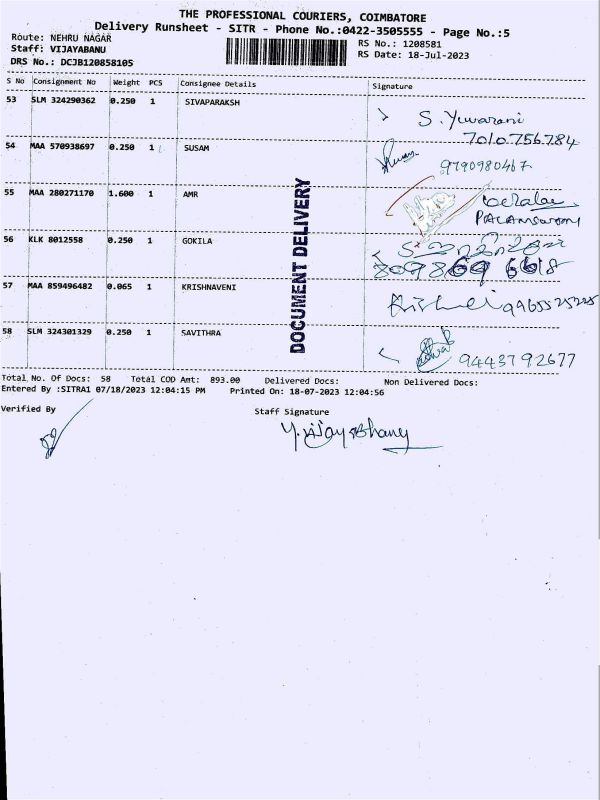 THE PROFESSIONAL COURIERS, COIMBATORE
Delivery Runsheet - SITR - Phone No.:0422-3505555 - Page No.:5
Route: NEHRU NAGAR
RS No.: 1208581
Staff: VIJAYABANU
RS Date: 18-Jul-2023
DRS No.: DCJB120858105
S No Consignment No Weight PCS Consignee Details Signature
53 SLM 324290362 0.250 1 SIVAPARAKSH S. Yuvarani
7010756784
54 MAA 570938697 0.250 1 SUSAM 9790980467
55 MAA 280271170 1.600 1 AMR
56 KLK 8012558 0.250 1 GOKILA
57 MAA 859496482 0.065 1 KRISHNAVENI
58 SLM 324301329 0.250 1 SAVITHRA 9443792677
DOCUMENT DELIVERY
Total No. Of Docs: 58 Total COD Amt: 893.00 Delivered Docs: Non Delivered Docs:
Entered By :SITRA1 07/18/2023 12:04:15 PM Printed On: 18-07-2023 12:04:56
Verified By
Staff Signature